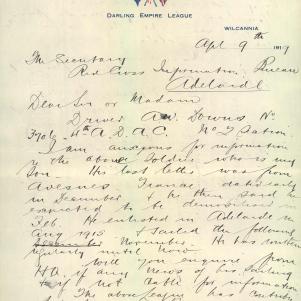 DARLING EMPIRE LEAGUE
WILCANNIA
Apl 9th 1919
The Secretary
Red Cross Information Bureau
Adelaide
Dear Sir or Madam
Driver A W Downs No
4th A.D.A.C.
I am anxious for information
of the above soldier who is my
Son. His last letter was from
Avesnes France dated early
in December & he then said he
expected to be demobilised in
Feb. He enlisted in Adelaide in
Aug 1915 & sailed the following
November. He has written
regularly until now
Will you enquire from
H.Q. if any news of his sailing
& if not cable for information
The above league has